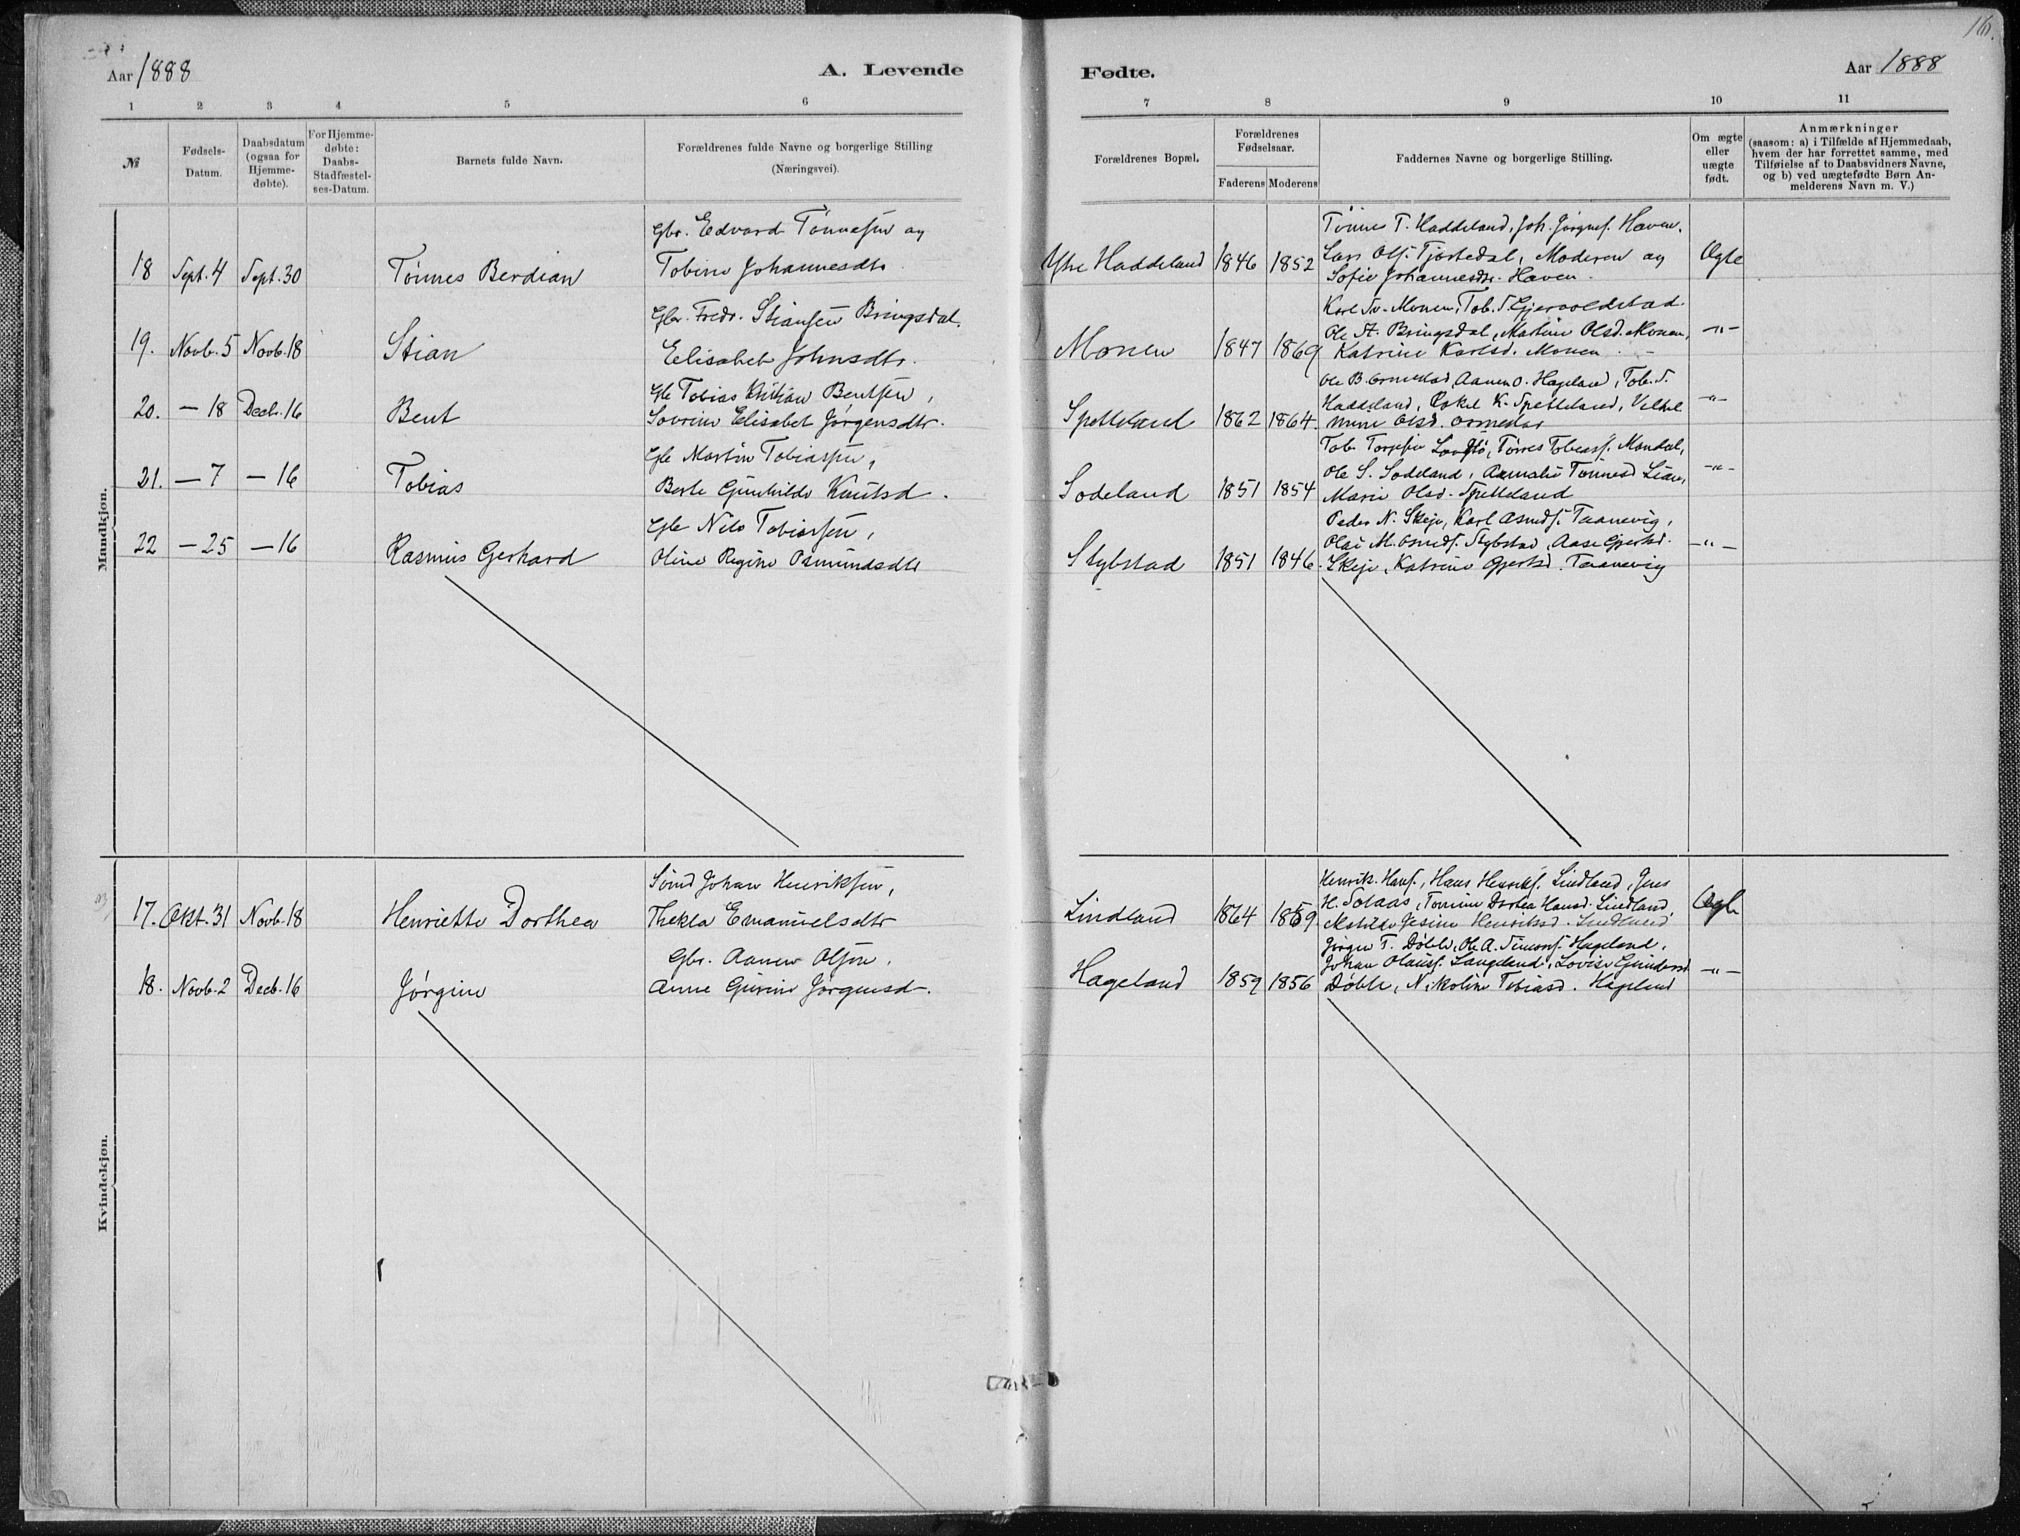 16.
Aar 1888 A. Levende Fødte. Aar 1888
1 2 3 4 5 6 7 8 9 10 11
№
Fødsels-
Datum.
Daabsdatum
(ogsaa for
Hjemme-
døbte).
For Hjemme-
døbte:
Daabs-
Stadfæstel-
ses-Datum.
Barnets fulde Navn.
Forældrenes fulde Navne og borgerlige Stilling
(Næringsvei).
Forældrenes Bopæl.
Forældrenes
Fødselsaar.
Faderens Moderens
Faddernes Navne og borgerlige Stilling.
Om ægte
eller
uægte
født.
Anmærkninger
(saasom: a) i Tilfælde af Hjemmedaab,
hvem der har forrettet samme, med
Tilføielse af to Daabsvidners Navne,
og b) ved uægtefødte Børn An-
melderens Navn m. V.)
Mandkjøn.
18 Sept. 4 Sept. 30 Tønnes Berdian
Gbr. Edvard Tønnesen og
Tobine Johannesdtr.
Ytre Haddeland 1846 1852
Tønnes T. Haddeland, Joh. Jørgns. Haven.
Lars Ols. Tjostedal, Moderen og
Sofie Johannesdtr. Haven.
Ægte
19. Novb. 5 Novb. 18 Stian
Gbr. Fredr. Stiansen Bringsdal.
Elisabet Johnsdtr.
Monen 1847 1869
Karl Sv. Monen, Tob. T. Gjervoldstad.
Ole St. Bringsdal, Martine Olsd. Monen,
Katrine Karlsd. Monen. -
-"-
20. - 18 Decb. 16 Bent
Gbr Tobias Kristian Bentsen,
Sovrine Elisabet Jørgensdtr.
Spetteland 1862 1864
Ole B. Ormestad, Aanen O. Hageland, Tob. T.
Haddeland, K. Spetteland, Velhel
mine Olsd. Ormestad
-"-
21. - 7 - 16 Tobias
Gbr Martin Tobiassen,
Berte Gunhilde Knutsd.
Sodeland 1851 1854
Tob. Torgesen Tørres Tobiass. Mandal,
Ole S. Sodeland, Amalie Tønnesd Lian,
Marie Olsd. Spetteland
-"-
22 - 25 - 16 Rasmus Gerhard
Gbr Nils Tobiassen,
Oline Regine Osmundsdtr
Stybstad 1851 1846
Peder N. Skeje, Karl Asmds. Taanevig,
Olai M. Osmds. Stybstad, Aase Gjertsd.
Skeje, Katrine Gjertsd. Taanevig
-"-
Kvindekjøn.
17. Okt. 31 Novb. 18 Henriette Dorthea
Sømd Johan Henriksen,
Thekla Emanuelsdtr
Lindland 1864 1859
Henrik Hans., Hans Henriks. Lindland, Jens
H. Solaas, Tomine Dortea Hansd. Lindland,
Matilde Jesine Henriksd. Lindland
Ægte
18. Novb. 2 Decb. 16 Jørgine
Gbr. Aanen Olsen,
Anne Gurine Jørgensd.
Hageland 1859 1856
Jørgen T. Døble, Ole A. Simons. Hageland,
Johan Olauss. Langeland, Lovise Gundersd
Døble, Nikoline Tobiasd. Hageland
-"-